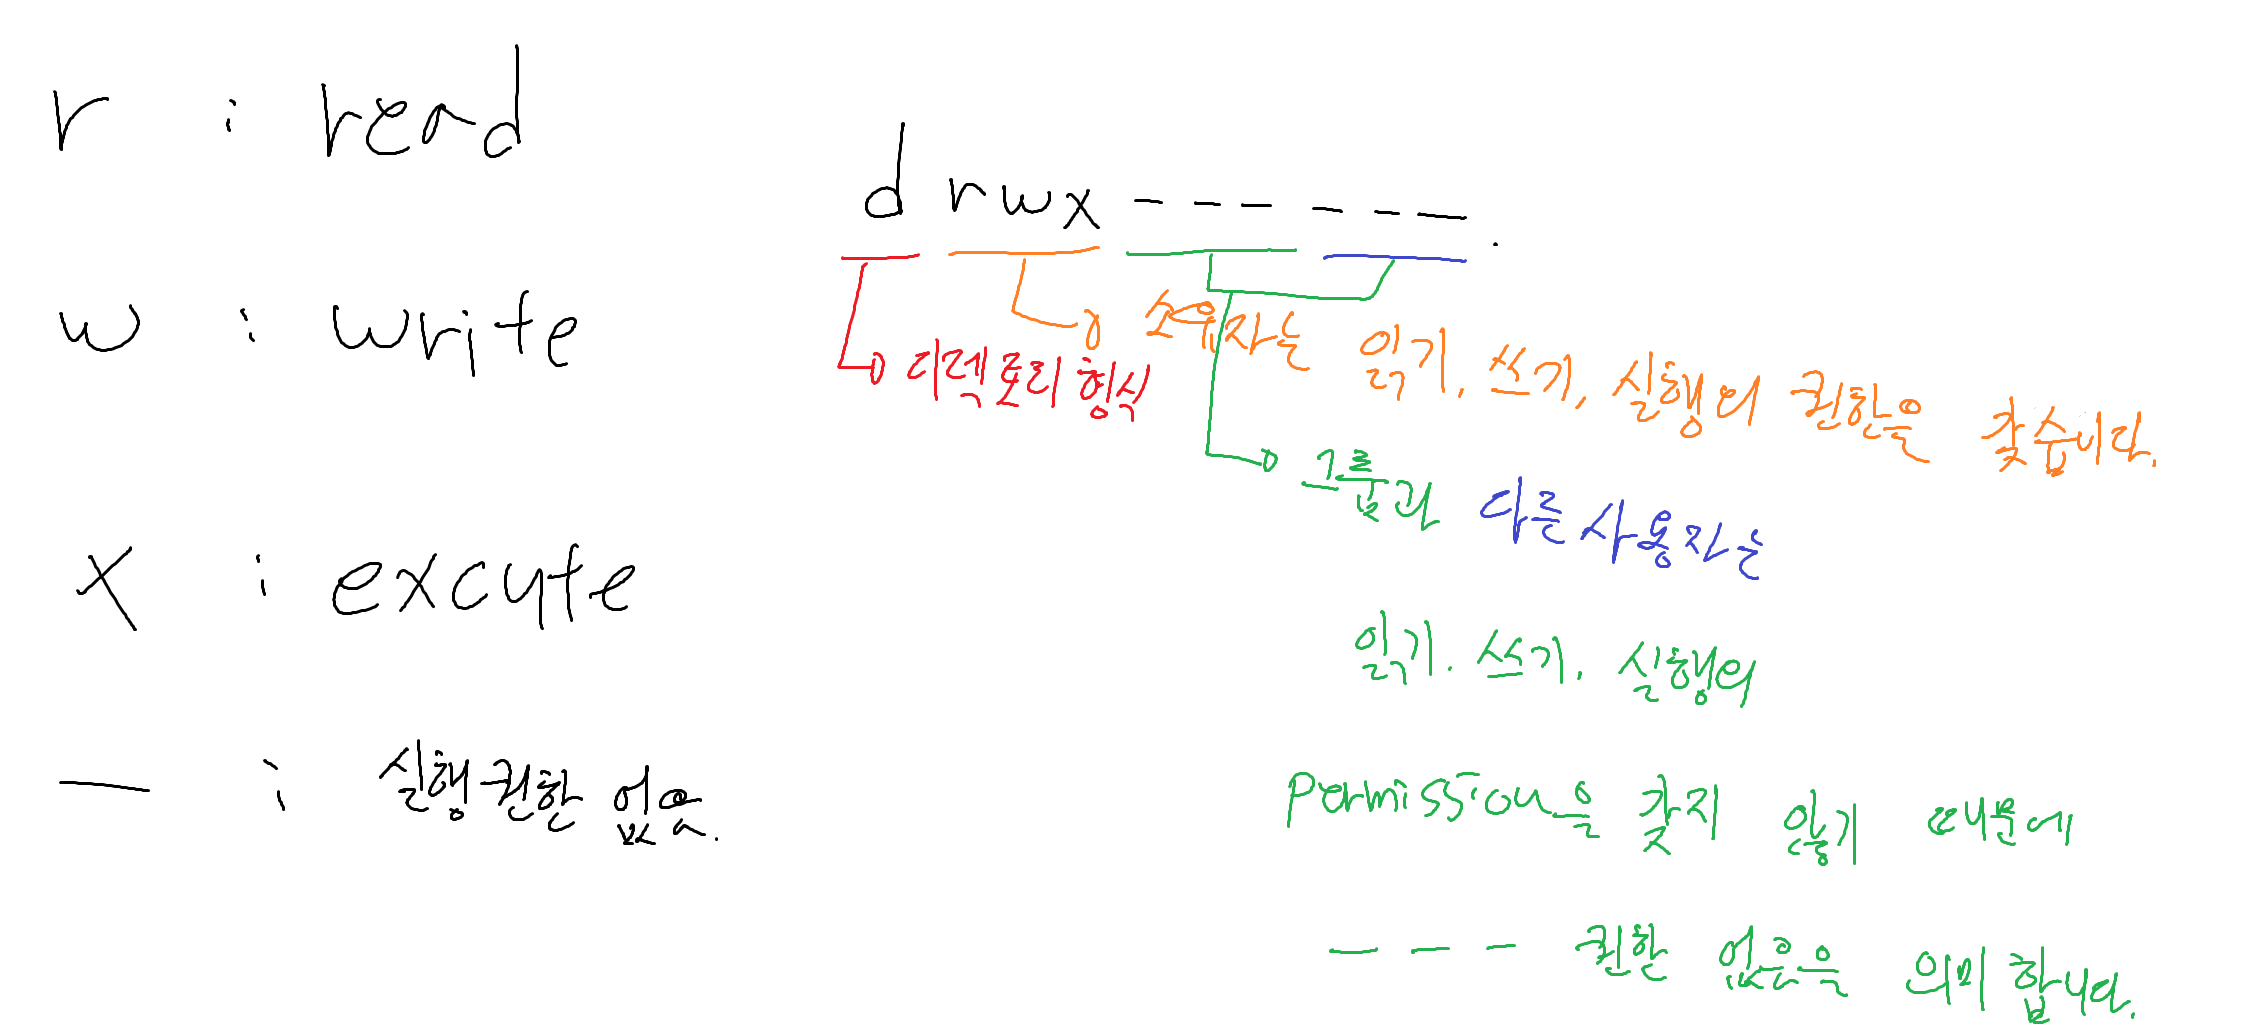 r : read
w : write
x : excute
— : 실행권한 없음.
drwx------.
디렉토리 형식
소유자는 읽기, 쓰기, 실행의 권한을 갖습니다.
그룹과 다른 사용자는
읽기, 쓰기, 실행의
permission을 갖지 않기 때문에
--- 권한 없음을 의미합니다.